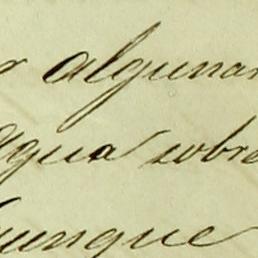 r algunas
agua sobre
aunque